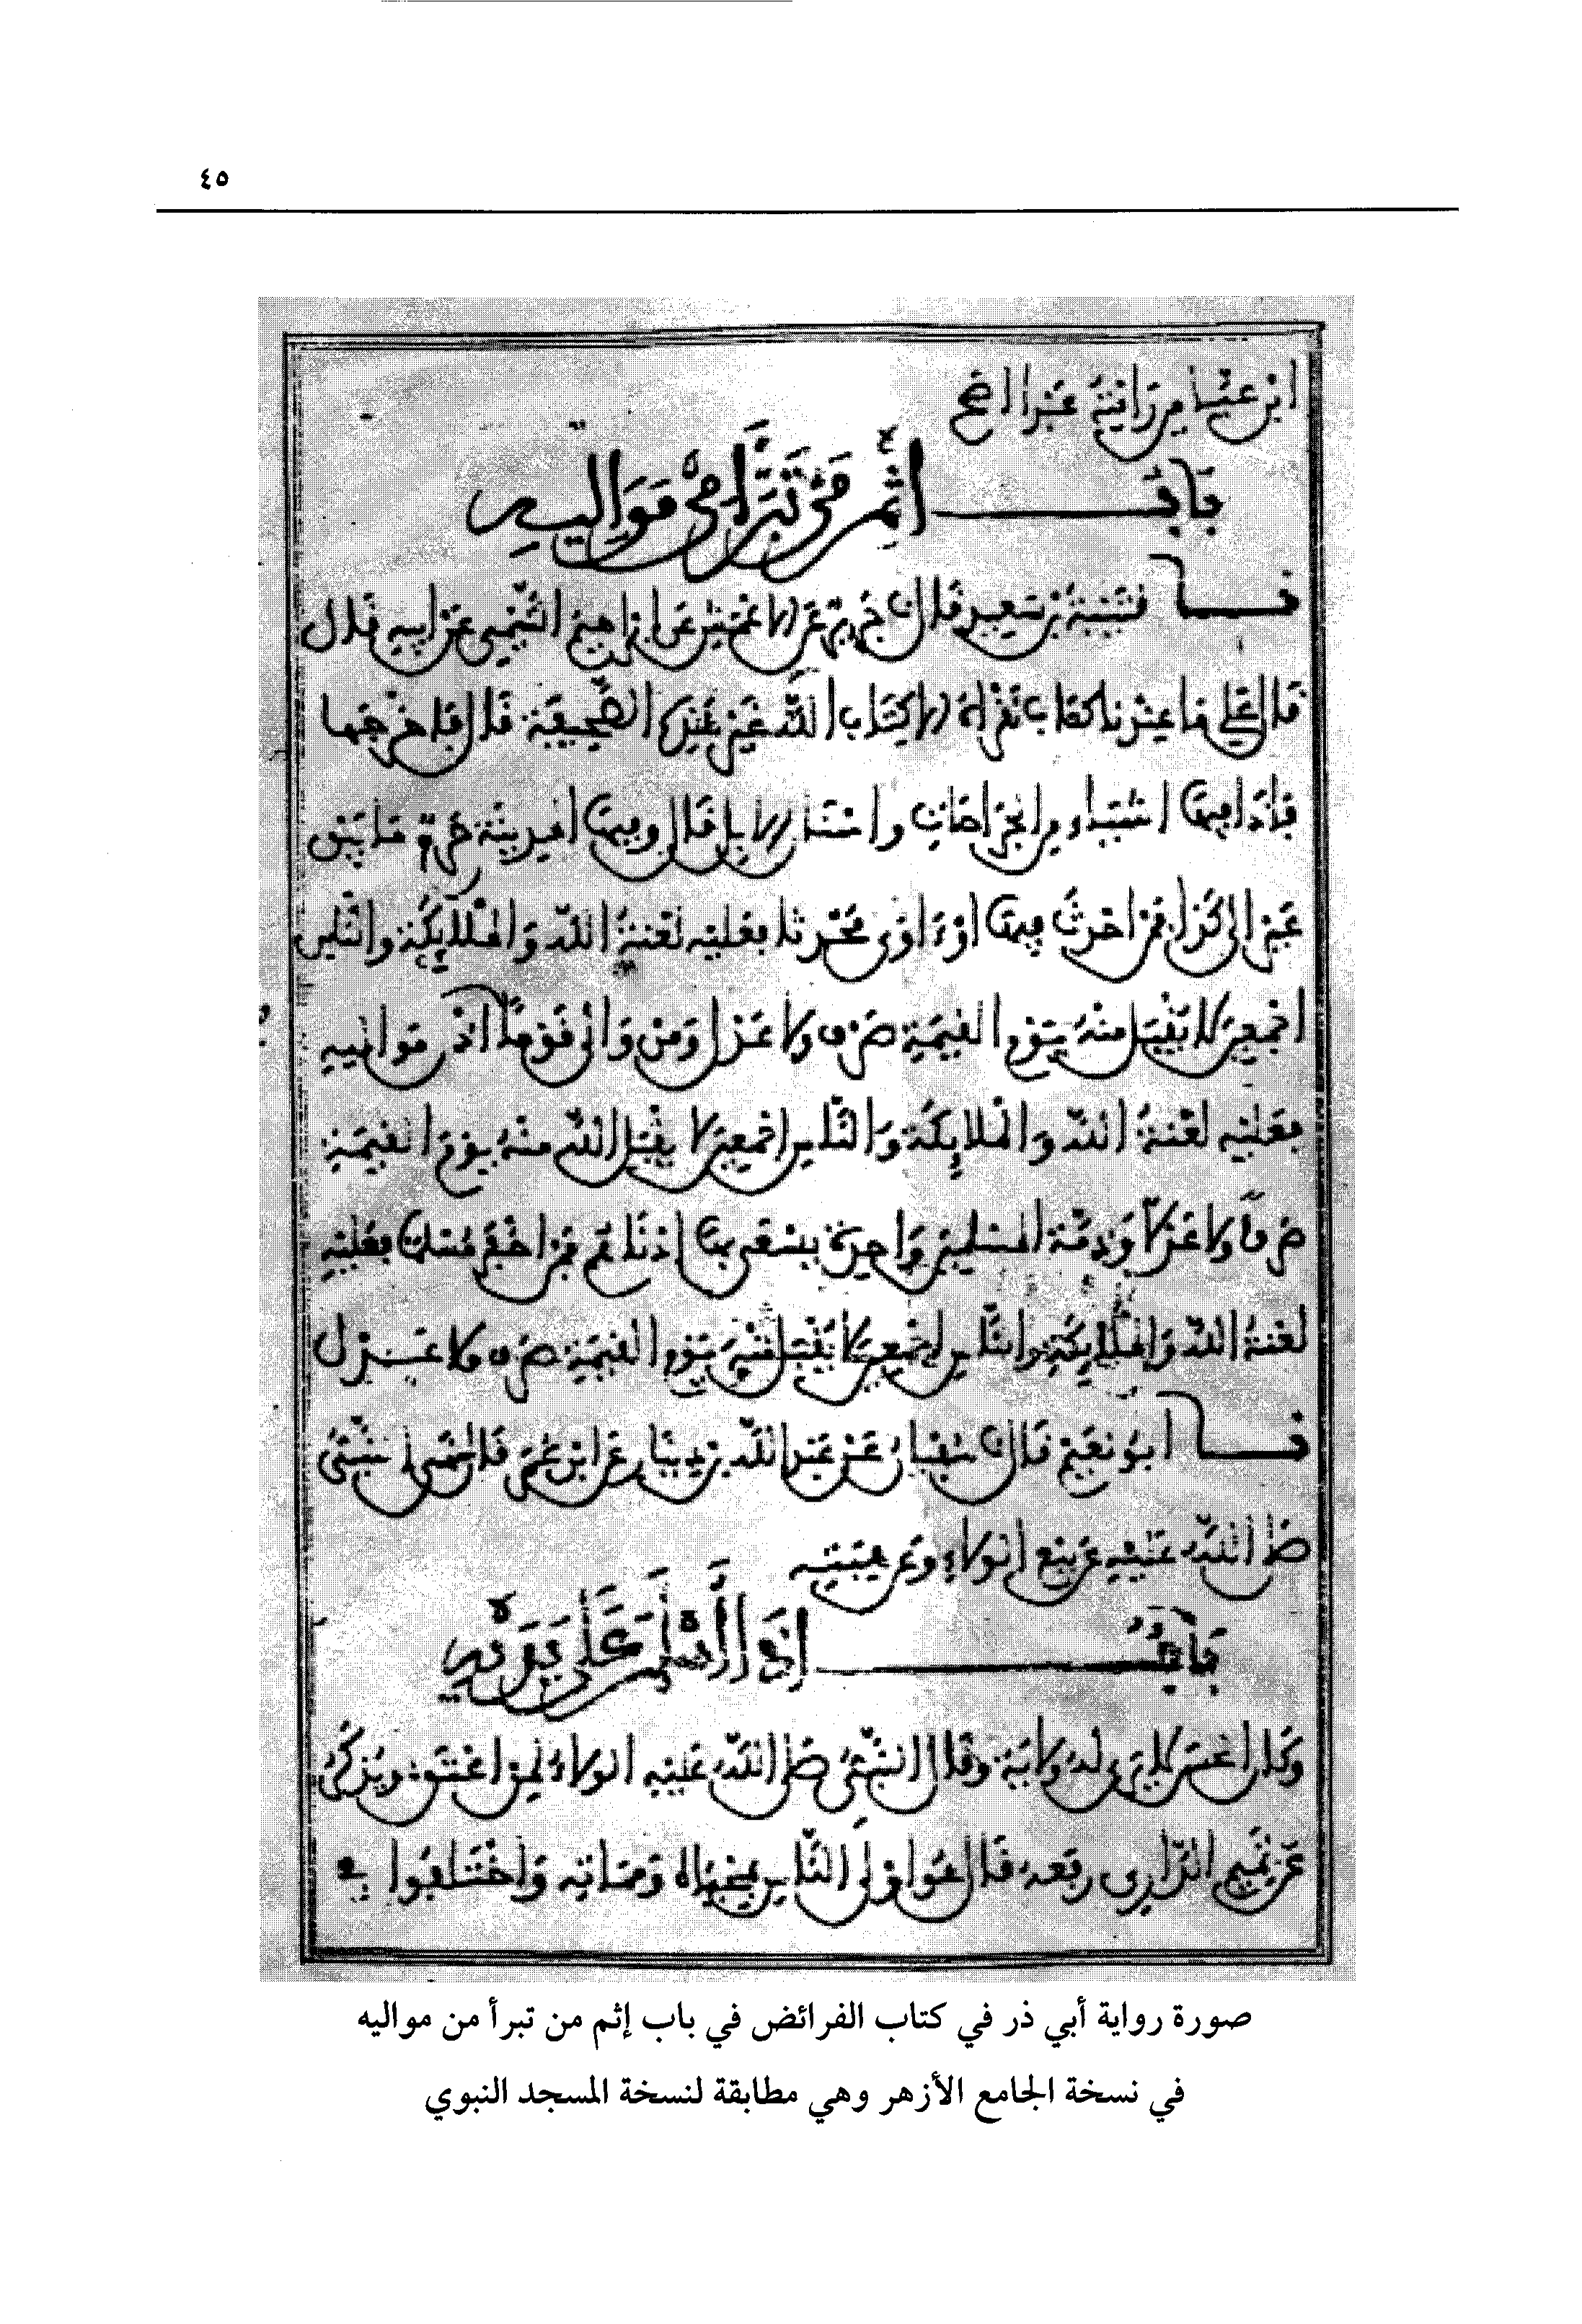 ٤٥
ابن عباس رايته عبدا اصح
باب اثم من تبرا من مواليه
نا قتيبة بن سعيد قال نا جرير عن الاعمش عن ابراهيم التيمي عن ابيه قال
قال علي ما عندنا كتاب نقراه الا كتاب الله غير هذه الصحيفة قال فاخرجها
فاذا فيها اشياء من الجراحات واسنان الابل قال وفيها المدينة حرم ما بين
عير الى كذا فمن احدث فيها او ءاوى محدثا فعليه لعنة الله والملائكة والناس
اجمعين لا يقبل منه يوم القيمة صرف ولا عدل ومن والى قوما اذن مواليه
فعليه لعنة الله والملائكة والناس اجمعين لا يقبل الله منه يوم القيمة
صرفا ولا عدلا وذمة المسلمين واحدة يسعى بها ادناهم فمن اخفر مسلما فعليه
لعنة الله والملائكة والناس اجمعين لا يقبل منه يوم القيمة صرف ولا عدل
نا ابو نعيم قال نا سفيان عن عبد الله بن دينار عن ابن عمر قال نهى النبي
صلى الله عليه عن بيع الولاء وعن هبته
باب اذا اسلم على يديه
وكان الحسن لا يرى له ولاية وقال النبي صلى الله عليه الولاء لمن اعتق ويذكر
عن تميم الداري رفعه قال هو اولى الناس بمحياه ومماته واختلفوا في
صورة رواية أبي ذر في كتاب الفرائض في باب إثم من تبرأ من مواليه
في نسخة الجامع الأزهر وهي مطابقة لنسخة المسجد النبوي